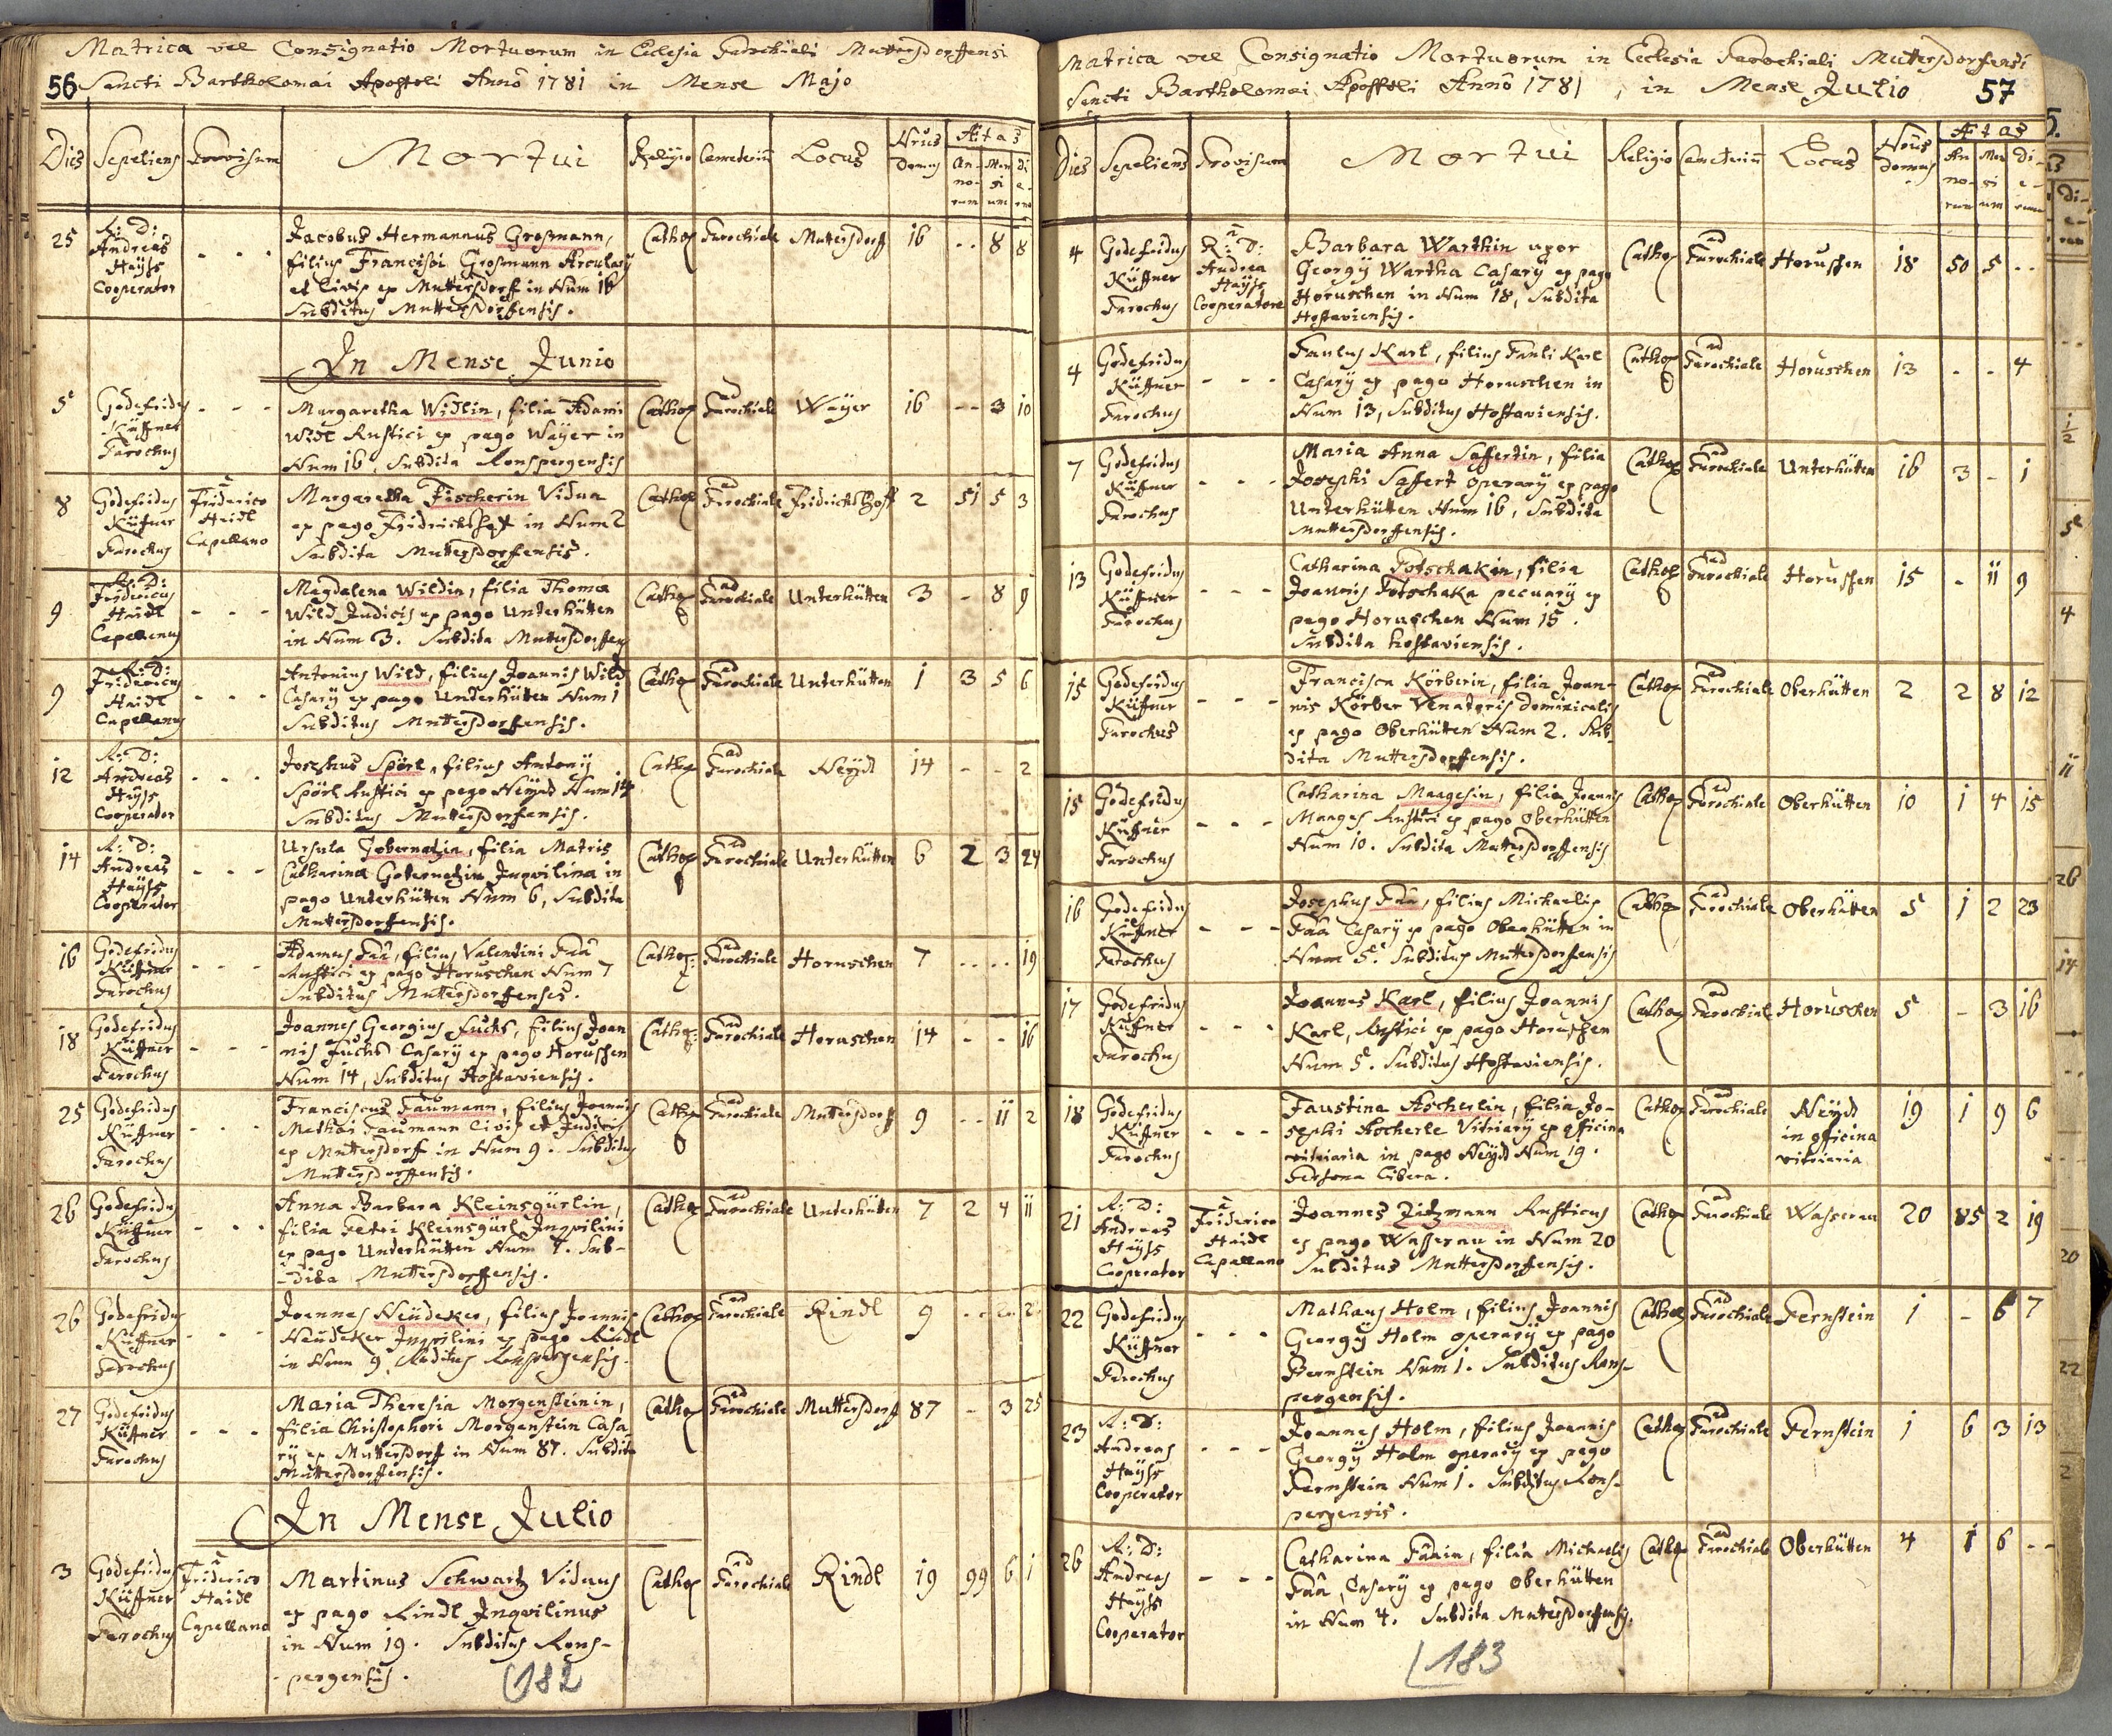 Matrica vel Consignatio Mortuorum in Ecclesia Parochiali Muttersdorffensi
56 Sancti Bartholomæi Apostoli Anno 1781 in Mense Majo
Dies Sepeliens Provisum Mortui Religio Cæmeterium Locus Nrus Domus Ætas
Annorum Mensium Dierum
25 R: D: Andreas Hayss Cooperator - - - Jacobus Hermannus Grosmann, Cathol Parochiale Muttersdorf 16 - - 8 8
filius Francisci Grosmann Arculary
et Civis ex Muttersdorf in Num 16
Subditus Muttersdorfensis.
In Mense Junio
5 Godefridus Küffner Parochus - - - Margaretha Widlin, filia Adami Cathol ad Parochiale Wayer 16 - - 3 10
Widl Rustici ex pago Wayer in
Num 16, Subdita Ronspergensis
8 Godefridus Küffner Parochus a Friderico Haidl Capellano Margaretha Fischerin Vidua Cathol ad Parochiale Fridrichshoff 2 51 5 3
ex pago Fridrichshof in Num 2
Subdita Muttersdorfensis.
9 R: D: Fridericus Haidl Capellanus - - - Magdalena Wildin, filia Thomæ Cathol ad Parochiale Unterhütten 3 - 8 9
Wild Judicis ex pago Unterhütten
in Num 3. Subdita Muttersdorffens
9 R: D: Fridericus Haidl Capellanus - - - Antonius Wild, filius Joannis Wild Cathol ad Parochiale Unterhütten 1 3 5 6
Casary ex pago Unterhütten Num 1
Subditus Muttersdorfensis.
12 R: D: Andreas Hayss Cooperator - - - Josephus Spörl, filius Antony Cathol ad Parochiale Neyd 14 - - 2
Spörl Rustici ex pago Neyd Num 14
Subditus Muttersdorfensis.
14 R: D: Andreas Hayss Cooperator - - - Ursula Gobernatzin, filia Matris Cathol ad Parochiale Unterhütten 6 2 3 24
Catharina Gobernatzin Inqvilina in
pago Unterhütten Num 6, Subdita
Muttersdorffensis.
16 Godefridus Küffner Parochus - - - Adamus Paa, filius Valentini Paa Cathol: ad Parochiale Horuschen 7 - - - - 19
Rustici ex pago Horuschen Num 7
Subditus Muttersdorfensis.
18 Godefridus Küffner Parochus - - - Joannes Georgius Fuchs, filius Joan Cathol: ad Parochiale Horuschen 14 - - 16
nis Fuchs Casary ex pago Horuschen
Num 14, Subditus Hostaviensis.
25 Godefridus Küffner Parochus - - - Franciscus Paumann, filius Joannis Cathol ad Parochiale Muttersdorff 9 - - 11 2
Mathæi Paumann Civis et Judicis
ex Muttersdorf in Num 9. Subditus
Muttersdorffensis.
26 Godefridus Küffner Parochus - - - Anna Barbara Kleinsgürlin, Cathol ad Parochiale Unterhütten 7 2 4 11
filia Petri Kleinsgürl Inqvilini
ex pago Unterhütten Num 7. Sub-
-dita Muttersdorffensis.
26 Godefridus Küffner Parochus - - - Joannes Neudeker, filius Joannis Cathol ad Parochiale Rindl 9 - - 2
Neudeker Inqvilini ex pago Rindl
in Num 9. Subditus Ronspergensis.
27 Godefridus Küffner Parochus - - - Maria Theresia Morgensteinin, Cathol ad Parochiale Muttersdorf 87 - 3 25
filia Christophori Morgenstein Casa
ry ex Muttersdorf in Num 87. Subdita
Muttersdorffensis.
In Mense Julio
3 Godefridus Küffner Parochus a Friderico Haidl Capellano Martinus Schwartz Viduus Cathol ad Parochiale Rindl 19 99 6 1
ex pago Rindl Inqvilinus
in Num 19. Subditus Rons-
-pergensis.
182
Matrica vel Consignatio Mortuorum in Ecclesia Parochiali Muttersdorfensi
Sancti Bartholomæi Apostoli Anno 1781, in Mense Julio 57
Dies Sepeliens Provisum Mortui Religio Cæmeterium Locus Nrus Domus Ætas
Annorum Mensium Dierum
4 Godefridus Küffner Parochus a R: D: Andrea Hayss Cooperatore Barbara Warthin uxor Cathol ad Parochiale Horuschen 18 50 5 - -
Georgy Wartha Casary ex pago
Horuschen in Num 18, Subdita
Hostaviensis.
4 Godefridus Küffner Parochus - - - Paulus Karl, filius Pauli Karl Cathol ad Parochiale Horuschen 13 - - 4
Casary ex pago Horuschen in
Num 13, Subditus Hostaviensis.
7 Godefridus Küffner Parochus - - - Maria Anna Saffertin, filia Cathol ad Parochiale Unterhütten 16 3 - 1
Josephi Saffert operary ex pago
Unterhütten Num 16, Subdita
Muttersdorffensis.
13 Godefridus Küffner Parochus - - - Catharina Potschakin, filia Cathol ad Parochiale Horuschen 15 - 11 9
Joannis Potschaka pecuary ex
pago Horuschen Num 15.
Subdita hostaviensis.
15 Godefridus Küffner Parochus - - - Francisca Körberin, filia Joan- Cathol ad Parochiale Oberhütten 2 2 8 12
nis Körber Venatoris Dominicalis
ex pago Oberhütten Num 2. Sub-
dita Muttersdorffensis.
15 Godefridus Küffner Parochus - - - Catharina Maagesin, filia Joannis Cathol ad Parochiale Oberhütten 10 1 4 15
Maages Rustici ex pago Oberhütten
Num 10. Subdita Muttersdorffensis
16 Godefridus Küffner Parochus - - - Josephus Paa, filius Michaelis Cathol ad Parochiale Oberhütten 5 1 2 23
Paa Casary ex pago Oberhütten in
Num 5. Subditus Muttersdorffensis
17 Godefridus Küffner Parochus - - - Joannes Karl, filius Joannis Cathol ad Parochiale Horuschen 5 - 3 16
Karl, Rustici ex pago Horuschen
Num 5. Subditus Hostaviensis.
18 Godefridus Küffner Parochus - - - Faustina Ascherlin, filia Jo- Cathol ad Parochiale Neyd in officina vitriaria 19 1 9 6
sephi Ascherle Vitriary ex officina
vitriaria in pago Neyd Num 19.
Persona Libera.
21 R: D: Andreas Hayss Cooperator a Friderico Haidl Capellano Joannes Zitzmann Rusticus Cathol ad Parochiale Wasserau 20 85 2 19
ex pago Wasserau in Num 20
Subditus Muttersdorfensis.
22 Godefridus Küffner Parochus - - - Mathæus Holm, filius Joannis Cathol ad Parochiale Pernstein 1 - 6 7
Georgy Holm operary ex pago
Bernstein Num 1. Subditus Rons-
pergensis.
23 R: D: Andreas Hayss Cooperator - - - Joannes Holm, filius Joannis Cathol ad Parochiale Pernstein 1 6 3 13
Georgy Holm operary ex pago
Pernstein Num 1. Subditus Rons-
pergensis.
26 R: D: Andreas Hayss Cooperator - - - Catharina Paain, filia Michaelis Cathol ad Parochiale Oberhütten 4 1 6 - -
Paa, Casary ex pago Oberhütten
in Num 4. Subdita Muttersdorffensis.
183